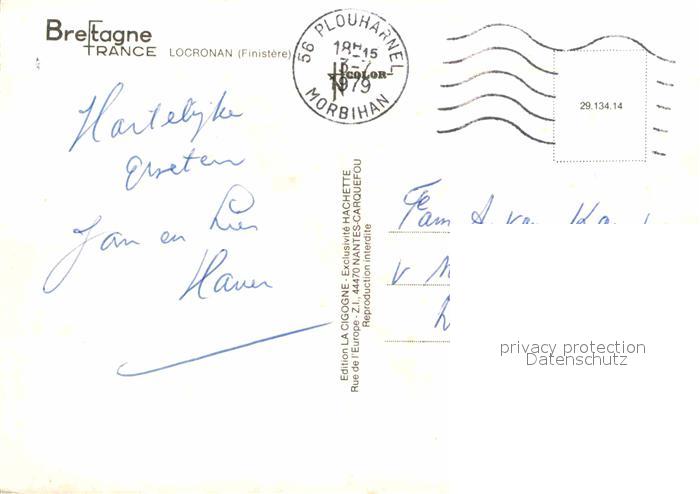 Bretagne
FRANCE LOCRONAN (Finistère)
56 PLOUHARNEL
18H15
3-7
1979
MORBIHAN
COLOR
29.134.14
Hartelijke
Groeten
Jan en Lies
Haver
Edition LA CIGOGNE - Exclusivité HACHETTE
Rue de l'Europe - Z.I., 44470 NANTES-CARQUEFOU
Reproduction interdite
Fam A van
v
privacy protection
Datenschutz